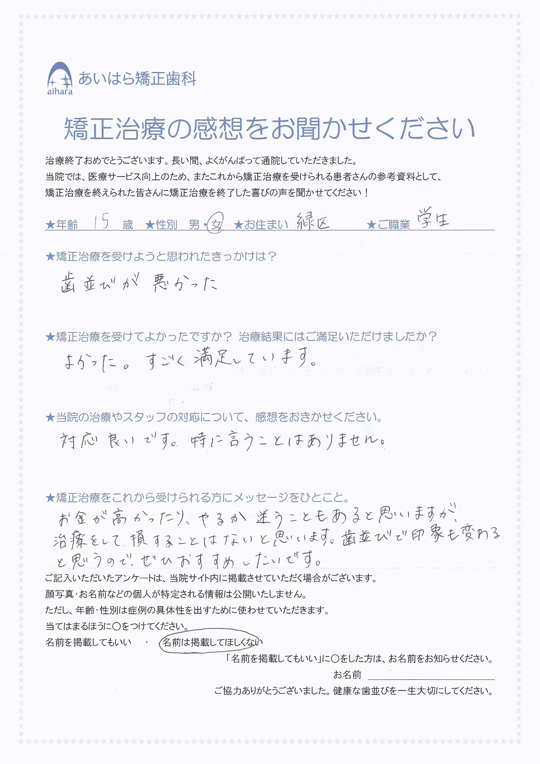 aihara
あいはら矯正歯科
矯正治療の感想をお聞かせください
治療終了おめでとうございます。長い間、よくがんばって通院していただきました。
当院では、医療サービス向上のため、またこれから矯正治療を受けられる患者さんの参考資料として、
矯正治療を終えられた皆さんに矯正治療を終了した喜びの声を聞かせてください！
★年齢 15 歳 ★性別 男・女 ★お住まい 緑区 ★ご職業 学生
★矯正治療を受けようと思われたきっかけは？
歯並びが悪かった
★矯正治療を受けてよかったですか？ 治療結果にはご満足いただけましたか？
よかった。すごく満足しています。
★当院の治療やスタッフの対応について、感想をおきかせください。
対応良いです。特に言うことはありません。
★矯正治療をこれから受けられる方にメッセージをひとこと。
お金が高かったり、やるか迷うこともあると思いますが、
治療をして損することはないと思います。歯並びで印象も変わる
と思うので、ぜひおすすめしたいです。
ご記入いただいたアンケートは、当院サイト内に掲載させていただく場合がございます。
顔写真・お名前などの個人が特定される情報は公開いたしません。
ただし、年齢・性別は症例の具体性を出すために使わせていただきます。
当てはまるほうに〇をつけてください。
名前を掲載してもいい ・ 名前は掲載してほしくない
「名前を掲載してもいい」に〇をした方は、お名前をお知らせください。
お名前
ご協力ありがとうございました。健康な歯並びを一生大切にしてください。